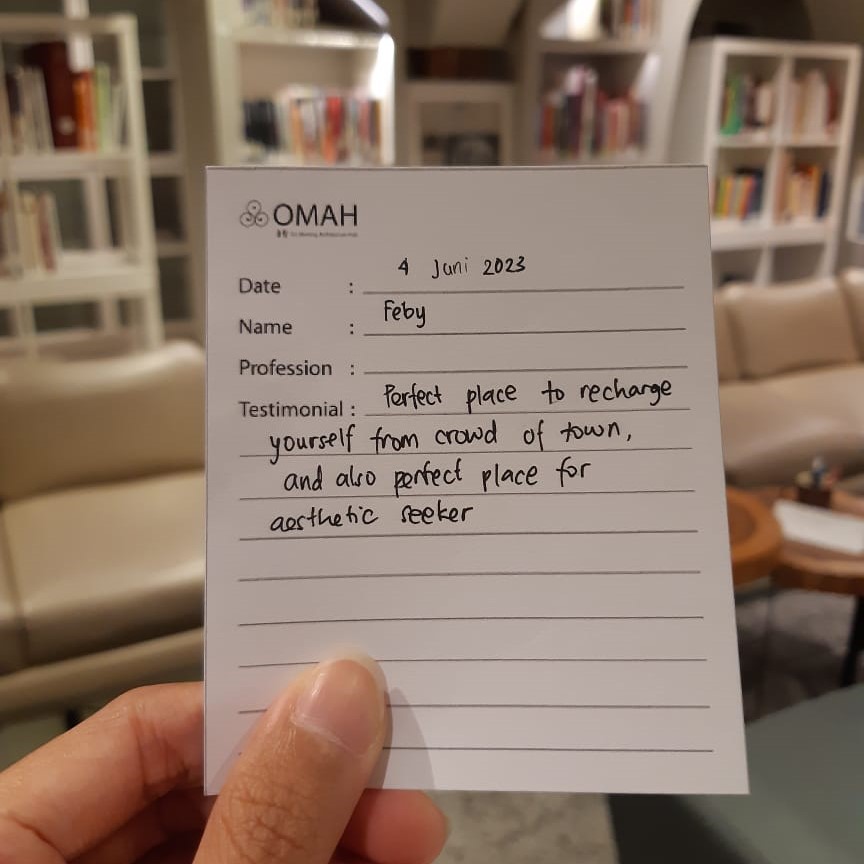 OMAH
Date : 4 Juni 2023
Name : Feby
Profession :
Testimonial : Perfect place to recharge
yourself from crowd of town,
and also perfect place for
aesthetic seeker